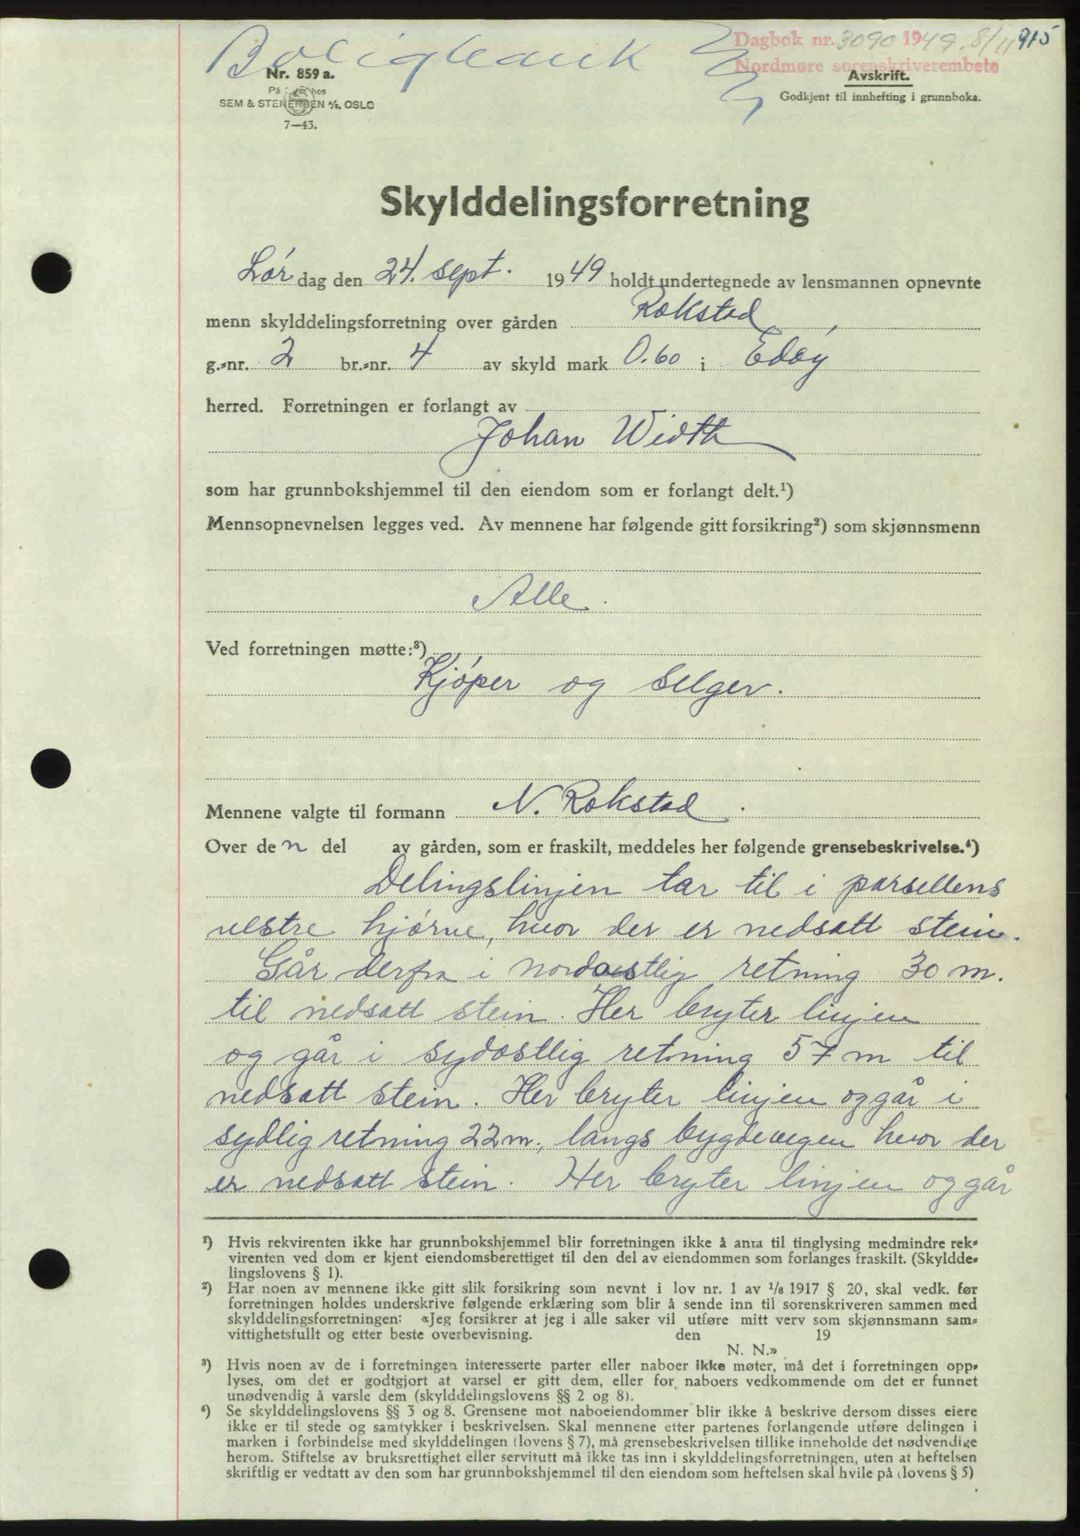 Boligbank
Dagbok nr. 3090 1949. 8/11 915
Nordmøre sorenskriverembete
Nr. 859 a.
På lager hos
SEM & STENERSEN A/S, OSLO
7—43.
Avskrift.
Godkjent til innhefting i grunnboka.
Skylddelingsforretning
Lør dag den 24. sept. 1949 holdt undertegnede av lensmannen opnevnte
menn skylddelingsforretning over gården Rokstad
g.-nr. 2 br.-nr. 4 av skyld mark 0.60 i Edøy
herred. Forretningen er forlangt av
Johan Width
som har grunnbokshjemmel til den eiendom som er forlangt delt.¹)
Mennsopnevnelsen legges ved. Av mennene har følgende gitt forsikring²) som skjønnsmenn
Alle.
Ved forretningen møtte:³)
Kjøper og selger.
Mennene valgte til formann N. Rokstad.
Over den del av gården, som er fraskilt, meddeles her følgende grensebeskrivelse.⁴)
Delingslinjen tar til i parsellens
vestre hjørne, hvor der er nedsatt stein.
Går derfra i nordostlig retning 30 m.
til nedsatt stein. Her bryter linjen
og går i sydostlig retning 57 m til
nedsatt stein. Her bryter linjen og går i
sydlig retning 22 m, langs bygdevegen hvor der
er nedsatt stein. Her bryter linjen og går
¹) Hvis rekvirenten ikke har grunnbokshjemmel blir forretningen ikke å anta til tinglysing medmindre rek-
virenten ved dom er kjent eiendomsberettiget til den del av eiendommen som forlanges fraskilt. (Skyldde-
lingslovens § 1).
²) Har noen av mennene ikke gitt slik forsikring som nevnt i lov nr. 1 av ¹/₈ 1917 § 20, skal vedk. før
forretningen holdes underskrive følgende erklæring som blir å sende inn til sorenskriveren sammen med
skylddelingsforretningen: «Jeg forsikrer at jeg i alle saker vil utføre mitt verv som skjønnsmann sam-
vittighetsfullt og etter beste overbevisning. den 19
N. N.»
³) Hvis noen av de i forretningen interesserte parter eller naboer ikke møter, må det i forretningen opp-
lyses, om det er godtgjort at varsel er gitt dem, eller for naboers vedkommende om det er funnet
unødvendig å varsle dem (skylddelingslovens §§ 2 og 8).
⁴) Se skylddelingslovens §§ 3 og 8. Grensene mot naboeiendommer blir ikke å beskrive dersom disses eiere
ikke er til stede og samtykker i beskrivelsen. Skal mennene etter partenes forlangende utføre delingen i
marken i forbindelse med skylddelingen (lovens § 7), må grensebeskrivelsen tillike inneholde det nødvendige
herom. Stiftelse av bruksrettighet eller servitutt må ikke tas inn i skylddelingsforretningen, uten at heftelsen
skriftlig er vedtatt av den som har grunnbokshjemmel til den eiendom som heftelsen skal hvile på (lovens § 5)